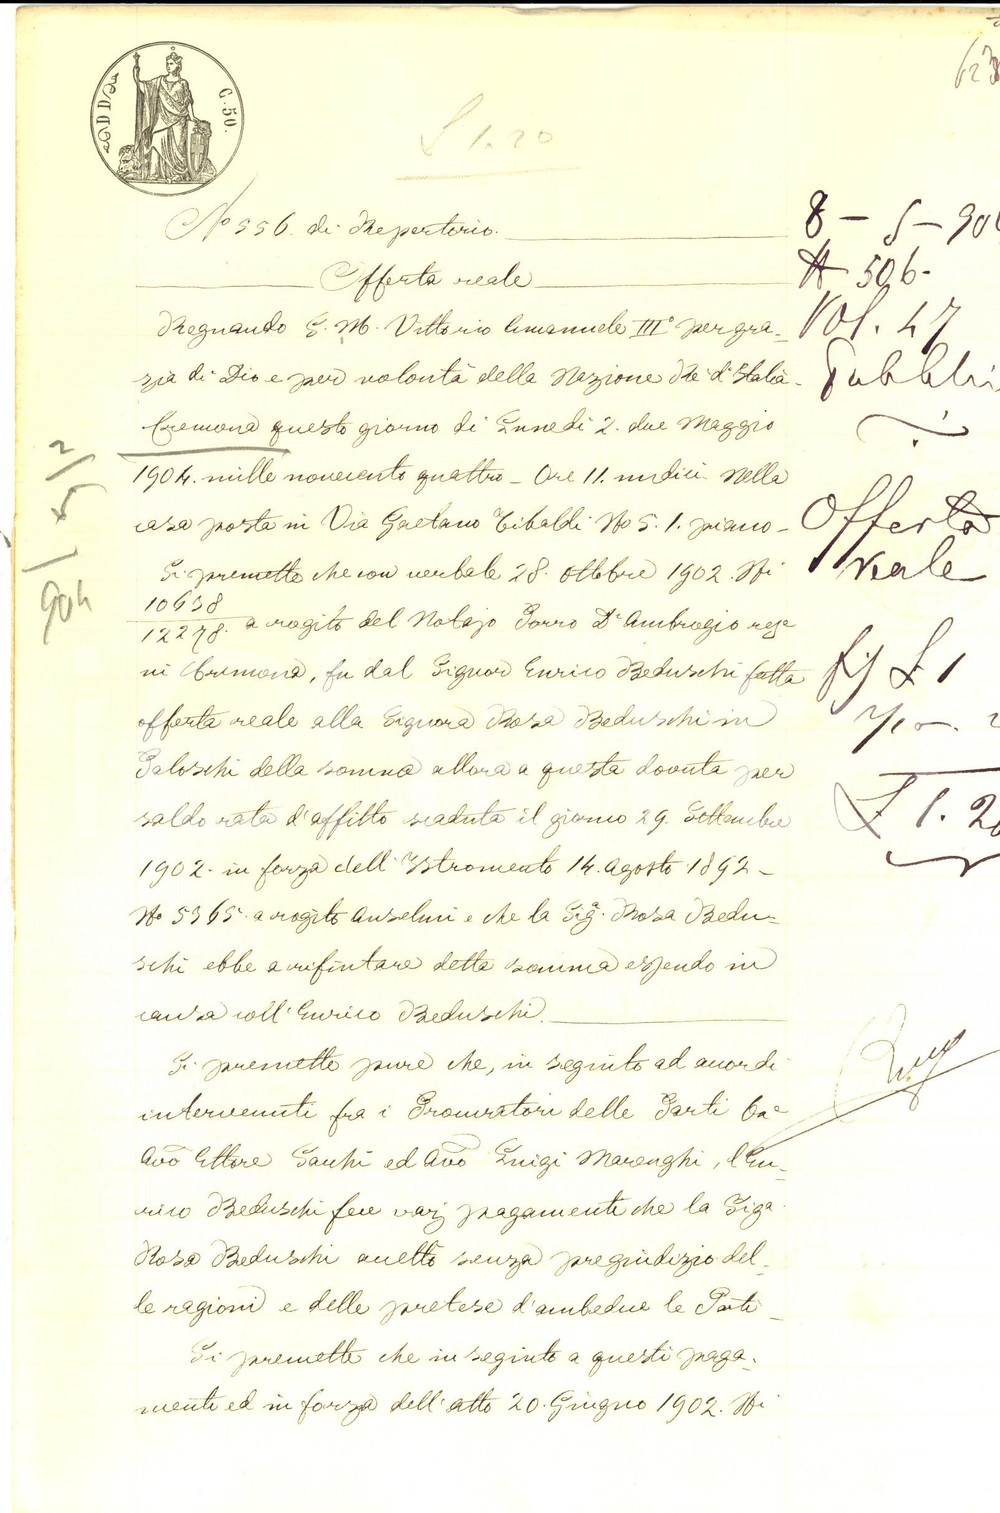 C. 50.
£ 1.20
No 556. di Repertorio.
Offerta reale
Regnando S. M. Vittorio Emanuele III° per gra-
zia di Dio e per volontà della Nazione Re d'Italia
Cremona questo giorno di Lunedi 2. due Maggio
1904. mille novecento quattro - Ore 11. undici. Nella
casa posta in Via Gaetano Tibaldi No 5. 1. piano -
Si premette che con verbale 28. Ottobre 1902. Ni
10638
12278. a rogito del Notajo Porro Dr Ambrogio rese
in Cremona, fu dal Signor Enrico Beduschi fatta
offerta reale alla Signora Rosa Beduschi in
Galoschi della somma allora a questa dovuta per
saldo rata d'affitto scaduta il giorno 29. Settembre
1902. in forza dell'Istromento 14. Agosto 1892 -
No 5365. a rogito Anselmi e che la Siga. Rosa Bedu=
schi ebbe a rifiutare detta somma essendo in
causa coll'Enrico Beduschi.
Si premette pure che, in seguito ad accordi
intervenuti fra i Procuratori delle Parti
Avo Ettore Sacchi ed Avo Luigi Marenghi, l'En-
rico Beduschi fece varj pagamenti che la Siga.
Rosa Beduschi accettò senza pregiudizio del-
le ragioni e delle pretese d'ambedue le Parti -
Si premette che in seguito a questi paga-
menti ed in forza dell'atto 20. Giugno 1902. Ni
8 - 5 - 904
N 506 -
Vol. 47
Pubblici
Offerta
reale
£ 1
£ 1.20
904